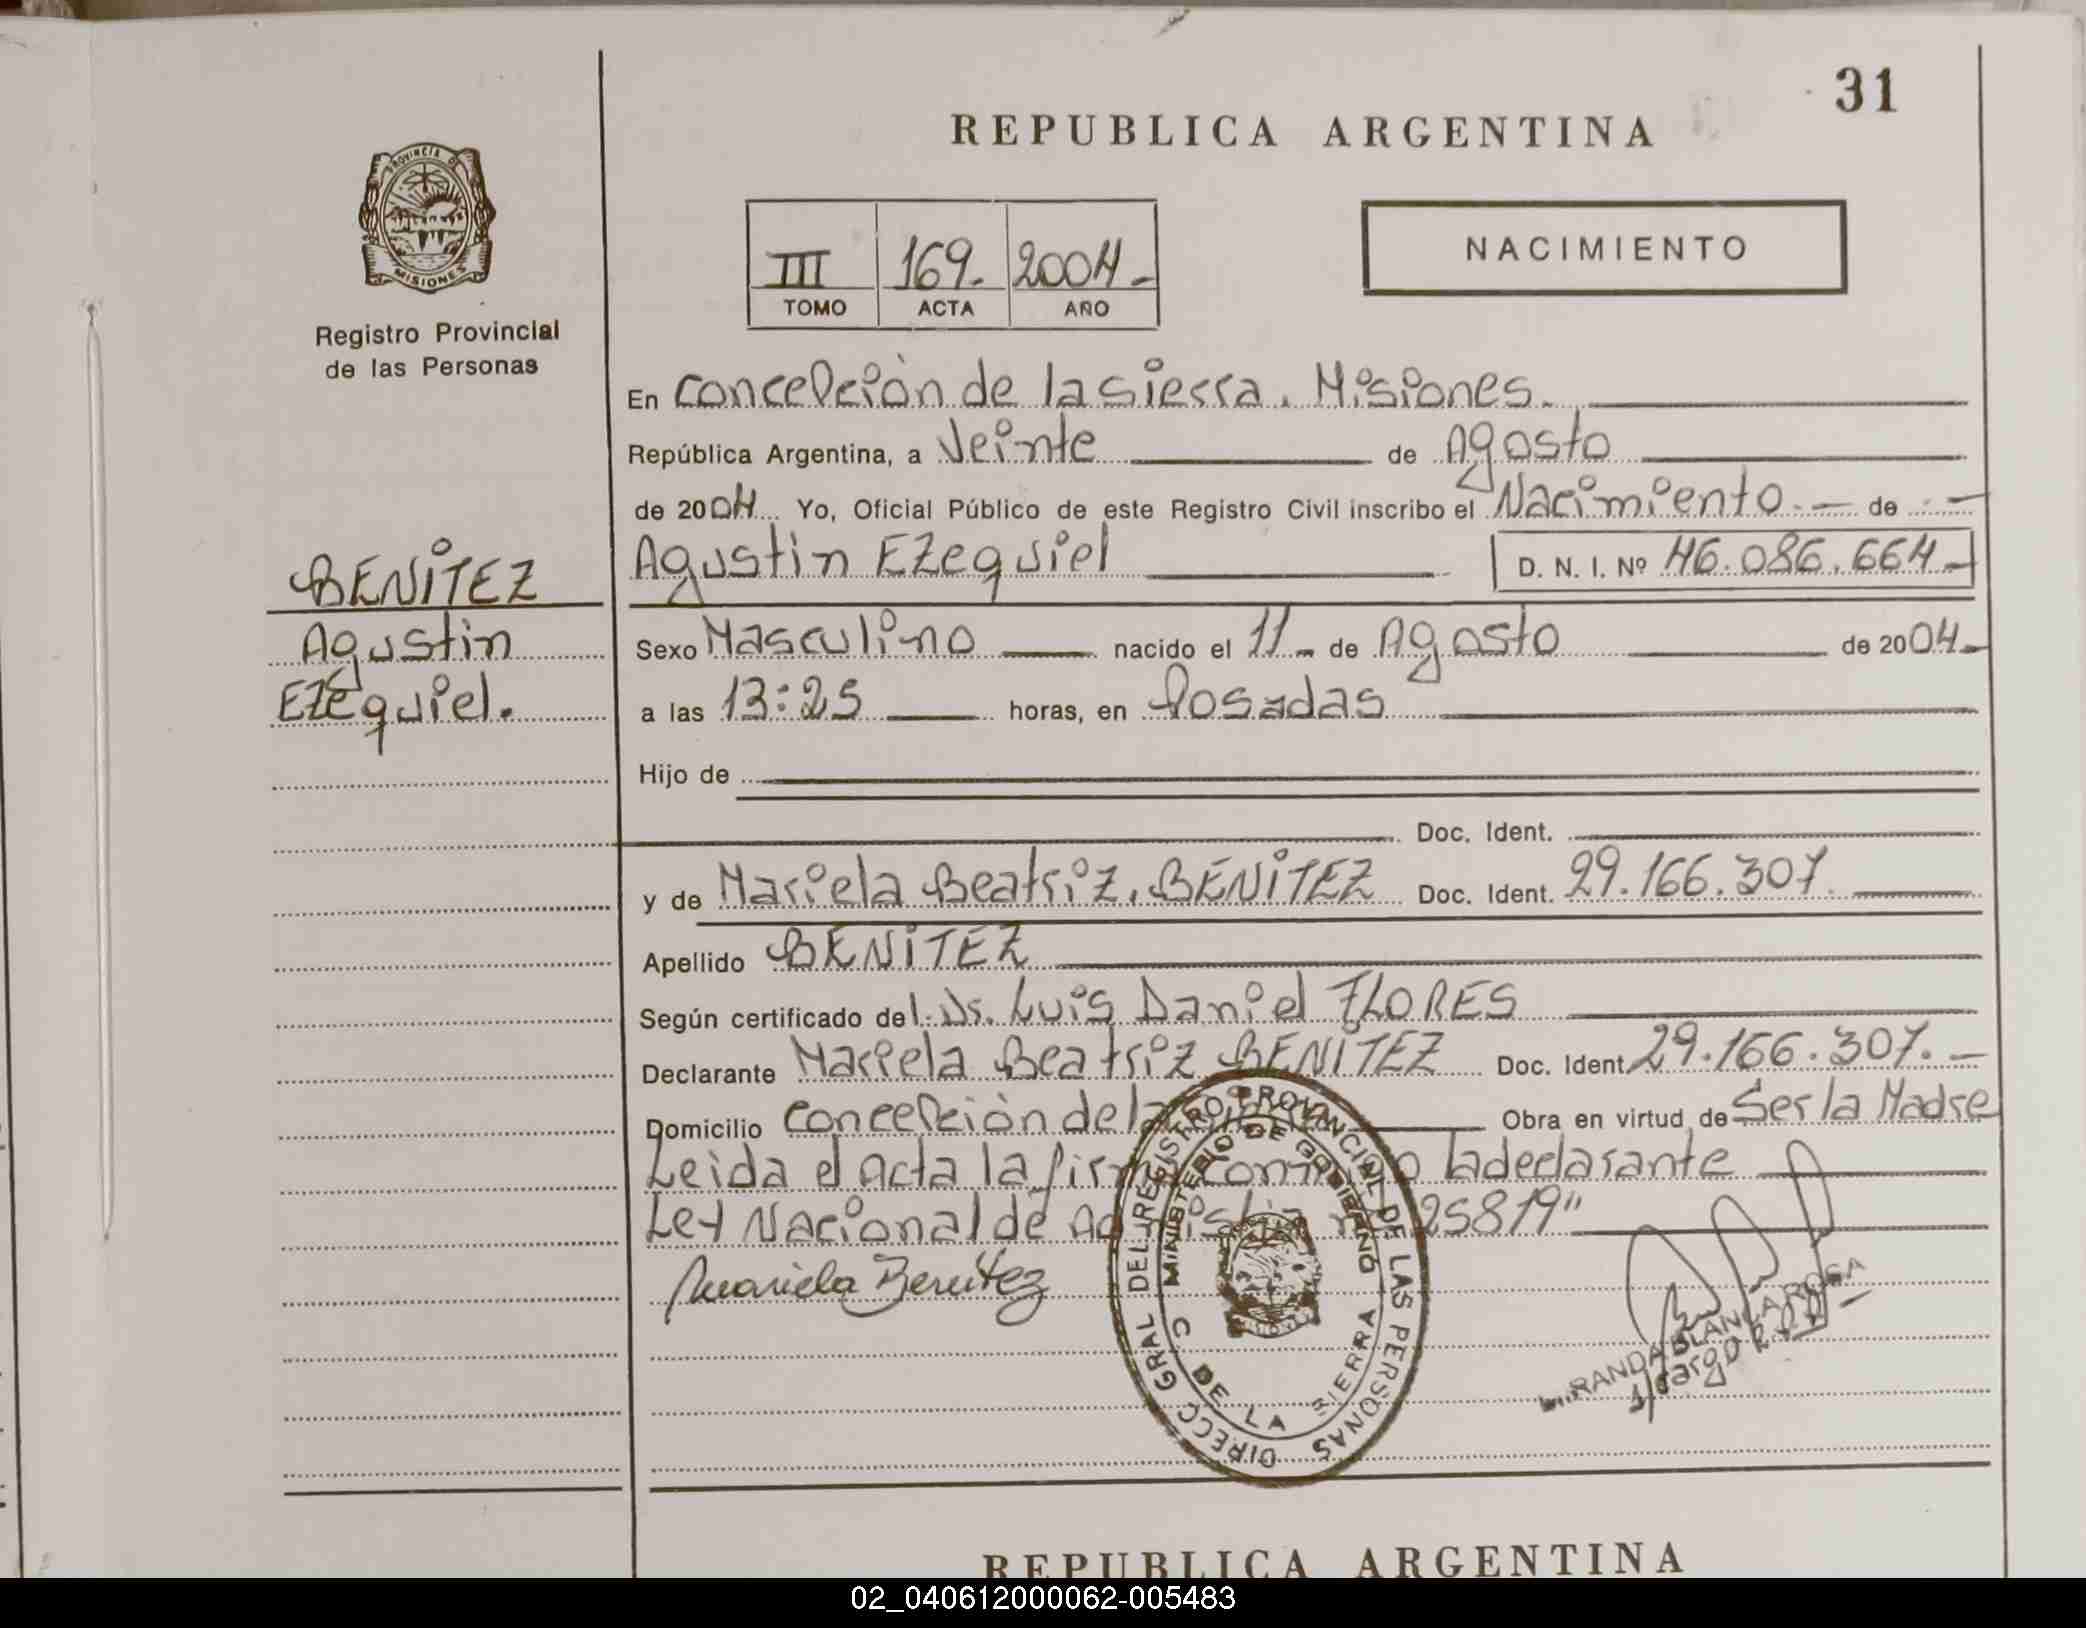 31
REPUBLICA ARGENTINA
PROVINCIA DE
MISIONES
Registro Provincial
de las Personas
III 169.- 2004-
TOMO ACTA AÑO
NACIMIENTO
En Concepción de la Sierra. Misiones.
República Argentina, a Veinte de Agosto
de 2004 Yo, Oficial Público de este Registro Civil inscribo el Nacimiento.- de -
BENiTEZ
Agustin
Ezequiel.
Agustin Ezequiel D. N. I. Nº 46.086.664-
Sexo Masculino nacido el 11- de Agosto de 2004-
a las 13:25 horas, en Posadas
Hijo de
Doc. Ident.
y de Mariela Beatriz. BENiTEZ Doc. Ident. 29.166.307.
Apellido BENiTEZ
Según certificado del. Dr. Luis Daniel FLORES
Declarante Mariela Beatriz BENITEZ Doc. Ident 29.166.307.-
Domicilio Concepción de la Obra en virtud de Ser la Madre
Leida el Acta la firma conmigo la declarante
Ley Nacional de 25819"
Mariela Benitez
DIRECC GRAL DEL REGISTRO PROVINCIAL DE LAS PERSONAS
MINISTERIO DE GOBIERNO
C DE LA SIERRA
MIRANDA BLANCA ROSA
REPUBLICA ARGENTINA
02_040612000062-005483